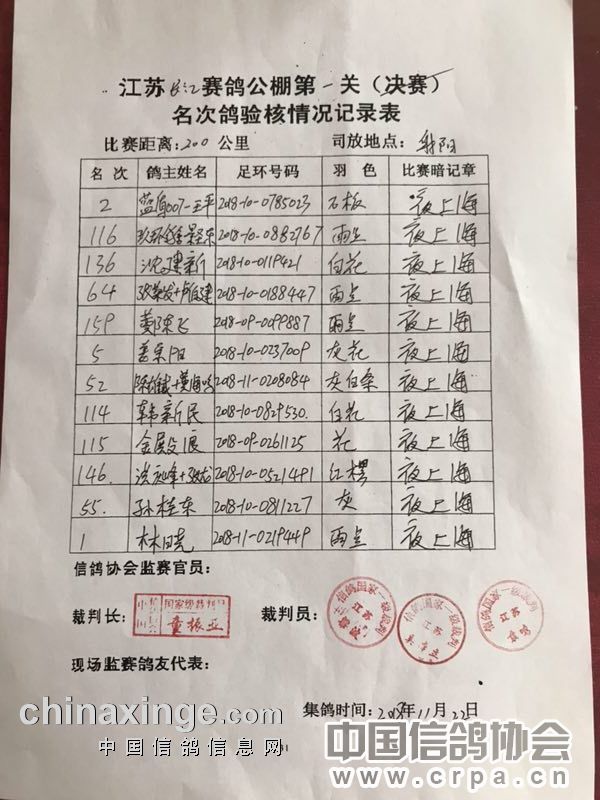 江苏 赛鸽公棚第一关（决赛）
名次鸽验核情况记录表
比赛距离：200 公里 司放地点：射阳
名 次 鸽主姓名 足环号码 羽 色 比赛暗记章
2 蓝鸟007-王平 2018-10-0785023 石板 夜上海
116 2018-10-0882767 雨点 夜上海
136 沈建新 2018-10-0119421 白花 夜上海
64 2018-10-0188447 雨点 夜上海
159 陈飞 2018-09-0099887 雨点 夜上海
5 阳 2018-10-0237009 灰花 夜上海
52 2018-11-0208084 灰白条 夜上海
114 韩新民 2018-10-0829530. 白花 夜上海
115 金殿展 2018-09-0261125 花 夜上海
146. 2018-10-0521491 红楞 夜上海
55. 孙桂东 2018-10-0811227 灰 夜上海
1 林日亮 2018-11-0219449 雨点 夜上海
信鸽协会监赛官员：
裁判长： 中国信鸽 国家级裁判 童振亚 裁判员： 信鸽国家一级裁判 江苏 信鸽国家一级裁判 江苏 信鸽国家一级裁判 江苏
现场监赛鸽友代表：
集鸽时间：2018年11月22日
chinaxinge.com
中国信鸽信息网
中国信鸽协会
www.crpa.cn